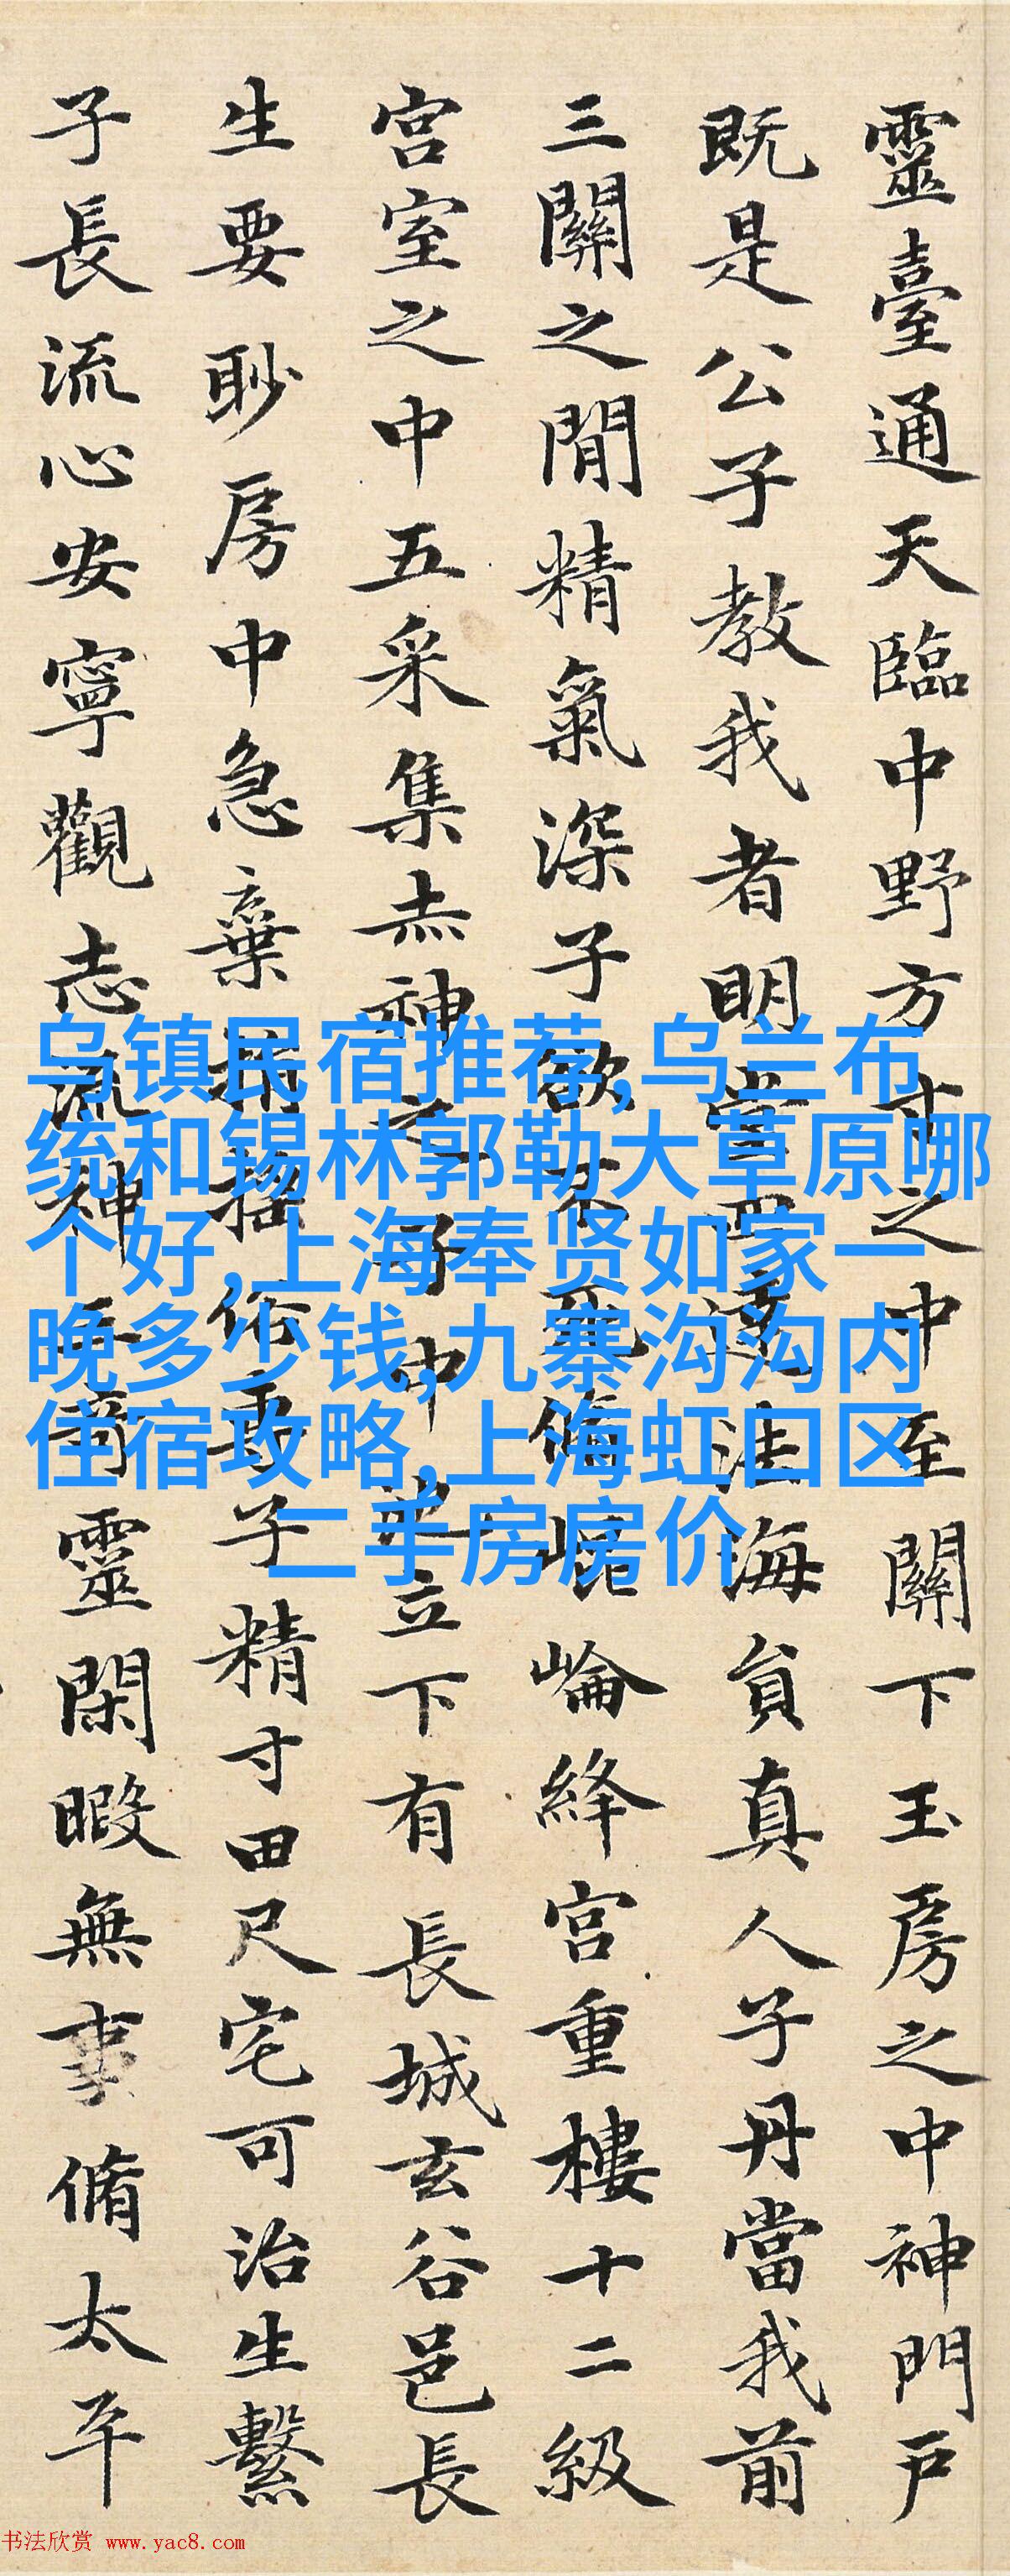 靈臺通天臨中野方寸之中至關下玉房之中神門戶
既是公子教我者明堂四達法海員真人子丹當我前
三關之閒精氣深子欲不死脩崐崘絳宮重樓十二級
宮室之中五采集赤神之子中池立下有長城玄谷邑長
生要眇房中急棄捐搖俗專子精寸田尺宅可治生繫
子長流心安寧觀志流神三奇靈閑暇無事脩太平
乌镇民宿推荐,乌兰布
统和锡林郭勒大草原哪
个好,上海奉贤如家一
晚多少钱,九寨沟沟内
住宿攻略,上海虹口区
二手房房价
书法欣赏 www.yac8.com